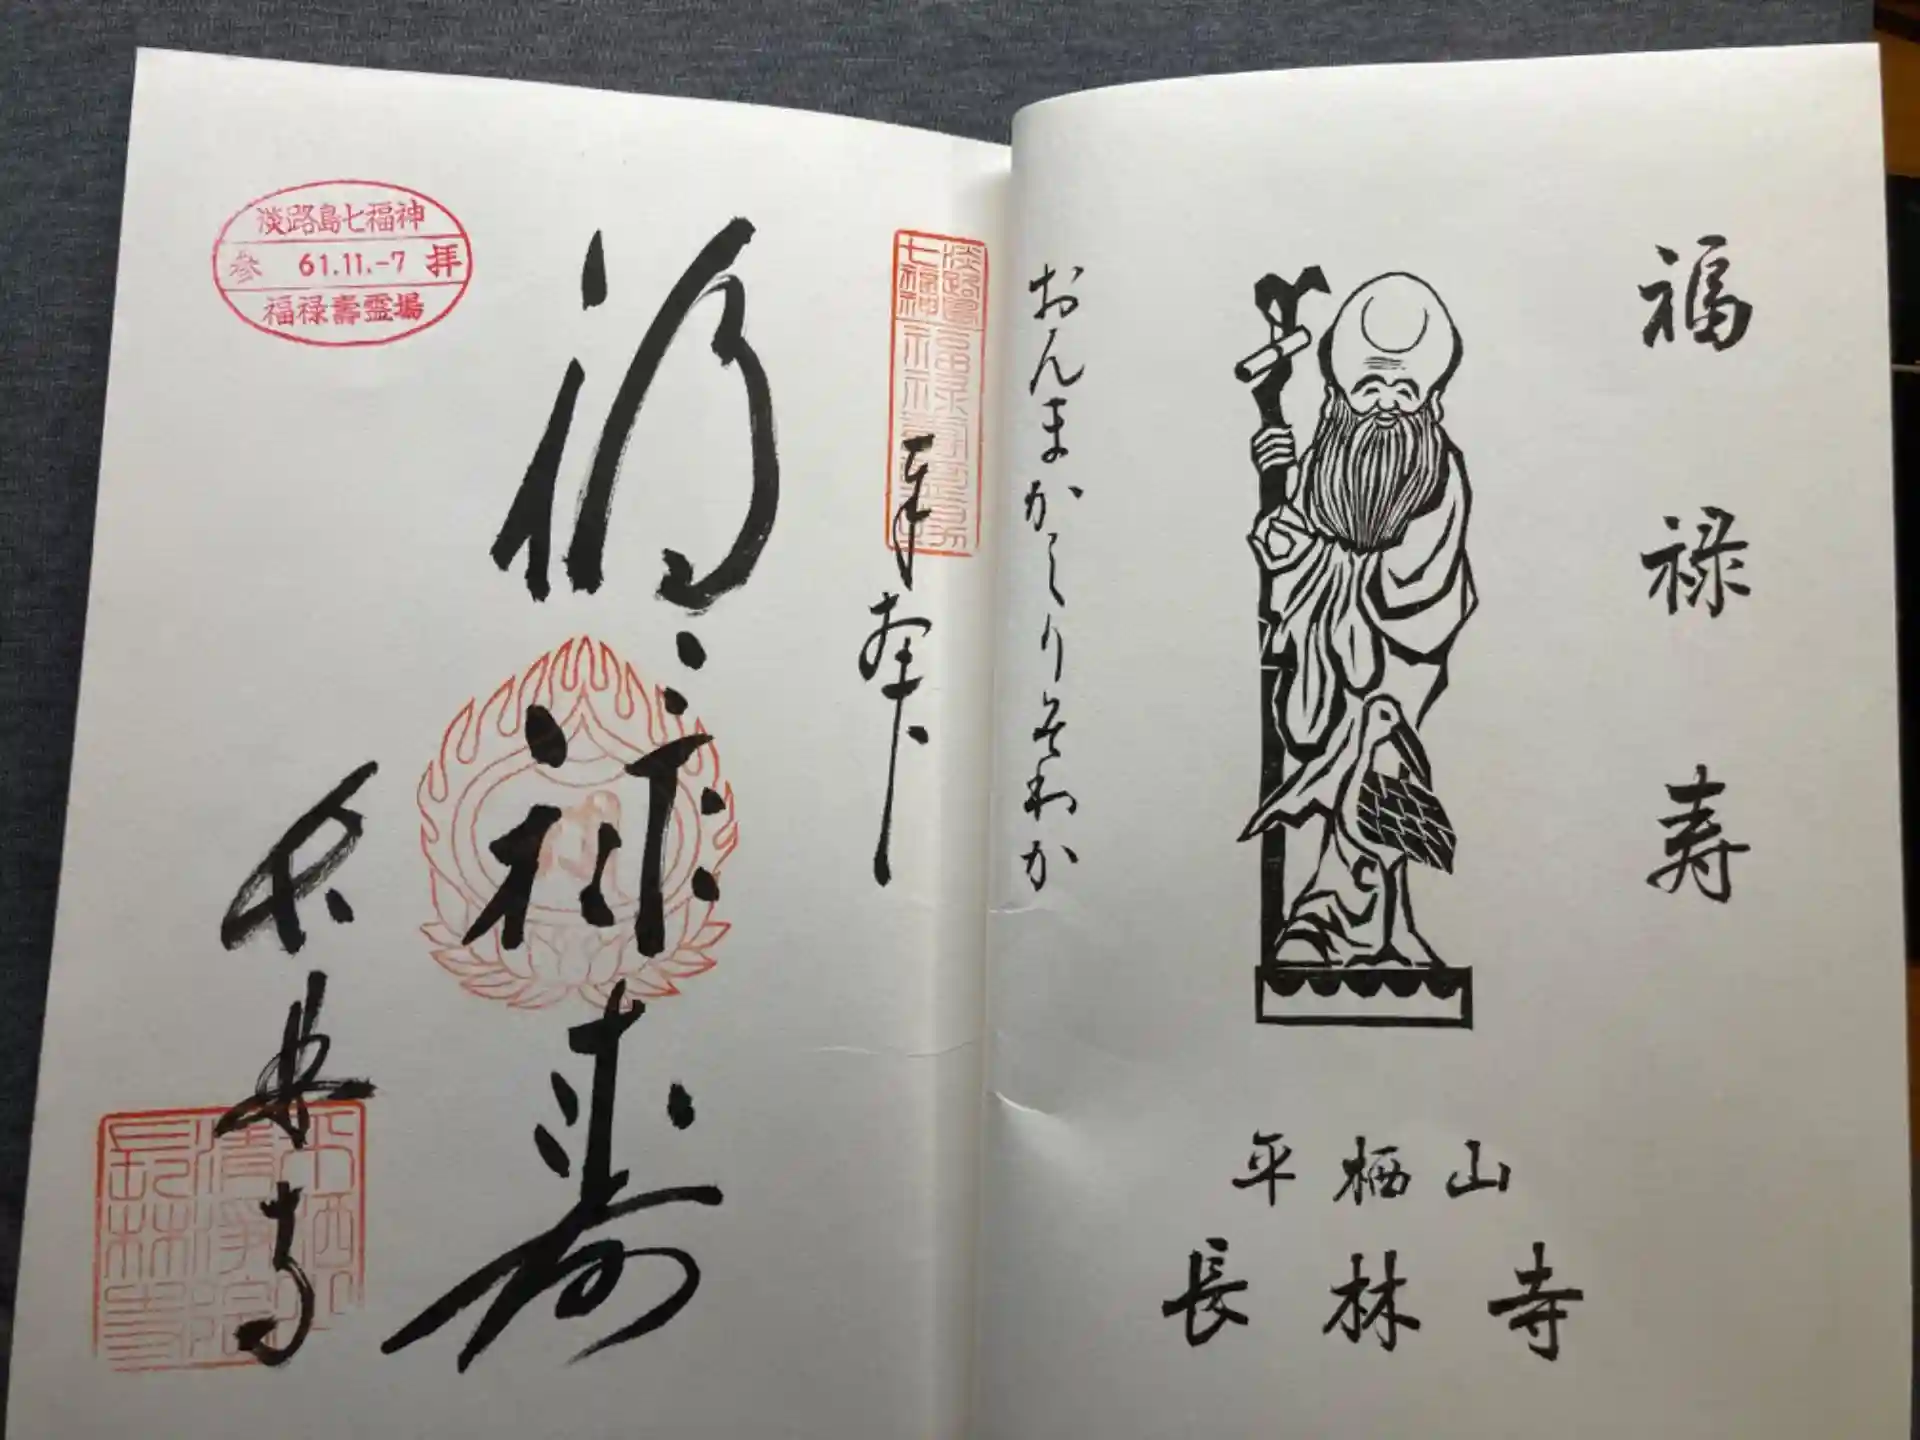 福禄寿
おんまかしりそわか
平栖山
長林寺
淡路島七福神
福禄寿霊場
奉拝
福禄寿
長林寺
淡路島七福神
参 61.11.-7 拝
福禄壽霊場
平栖山
清浄院
長林寺